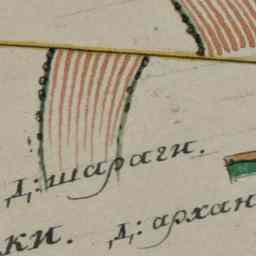 Д: шараги.
ки. Д: архан